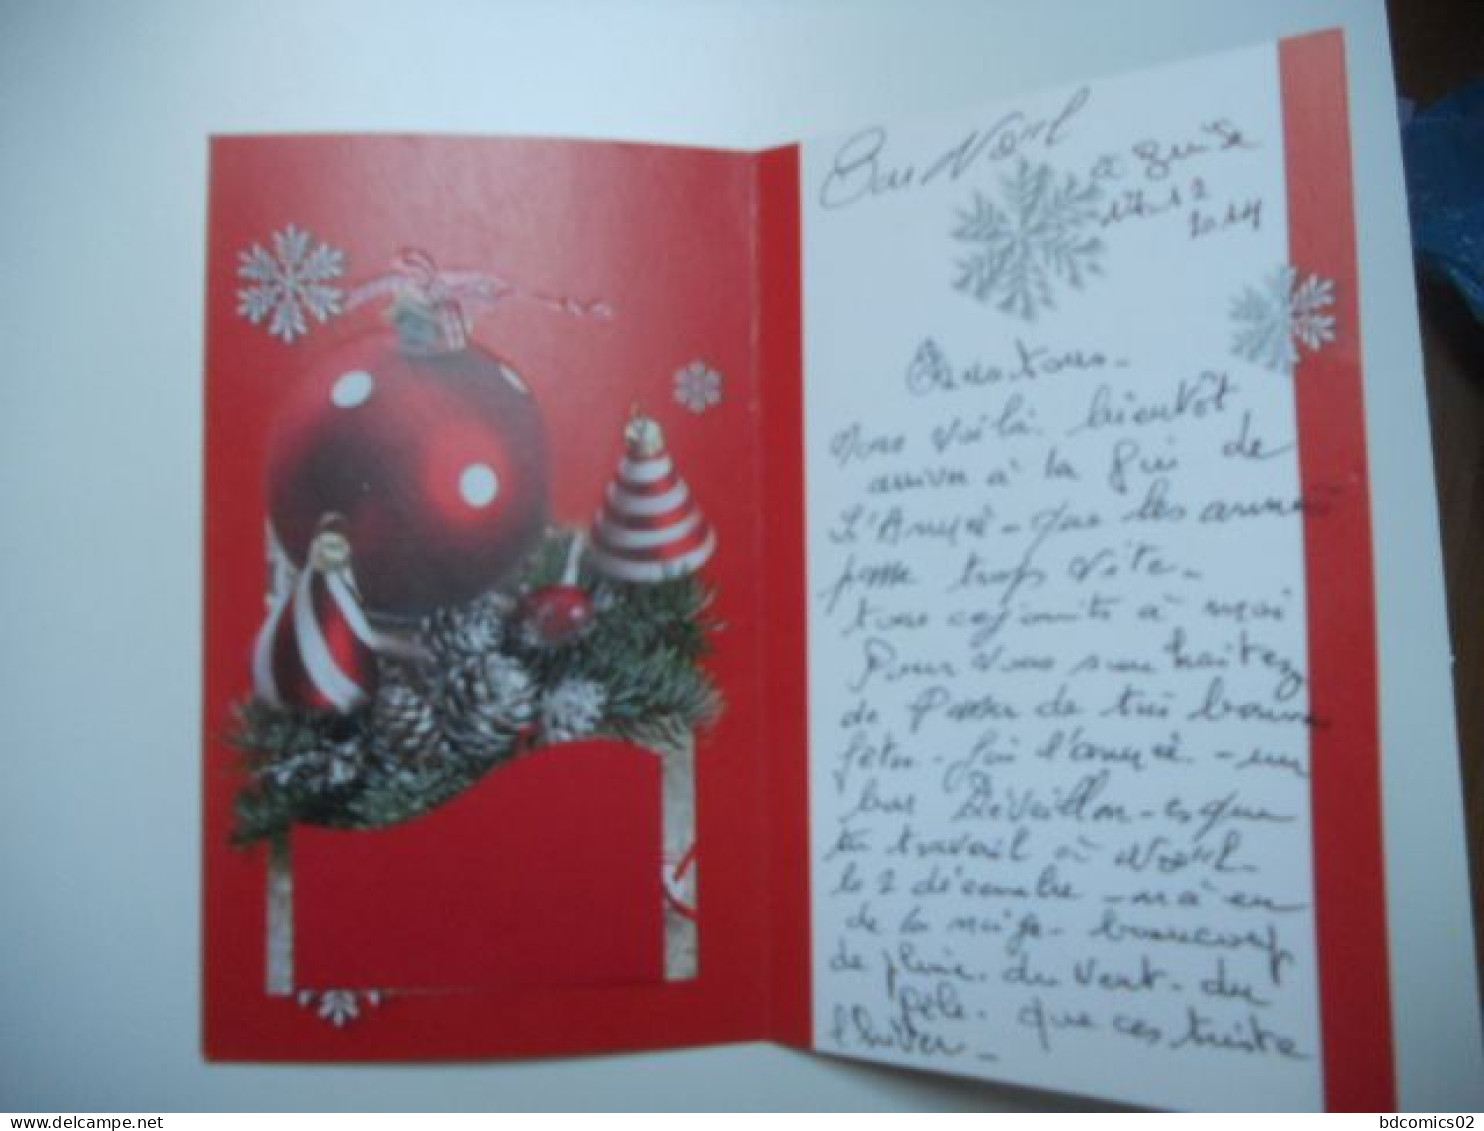 Bon Noël
à Guise
17.12
2014
à vous tous.
Nous voilà bientôt
arriver à la fin de
L'Année - que les années
passe trop vite.
tous conjointe à moi
Pour vous souhaitez
de Passer de très bonne
fêtes. fin l'année. un
bon Réveillon - es que
tu travail à Noël.
le 2 décembre - on a eu
de la neige. beaucoup
de pluie. du vent. du
gèle. que ces triste
l'hiver.
bdcomics02